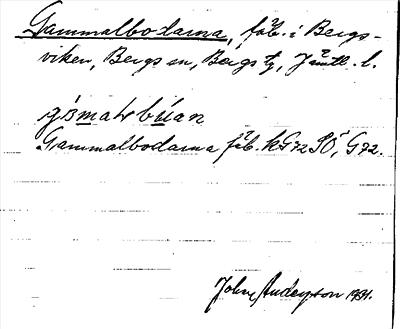 Gammalbodarna, fäb. i Bergs-
viken, Bergs sn, Bergs tg, Jämtl. l.
Gammalbodarna fäb. kG72 SÖ, G72.
John Anderson 1931.